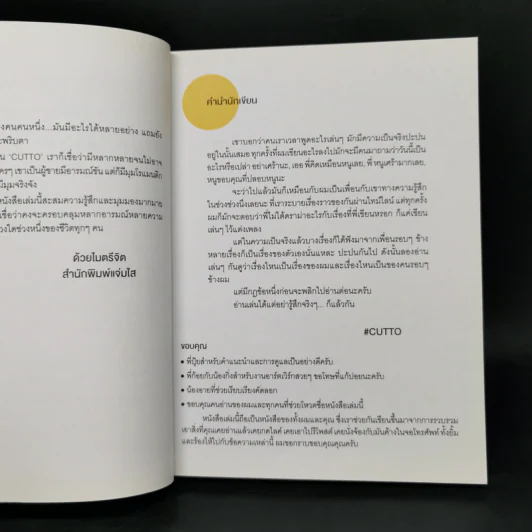 งคนคนหนึ่ง...มันมีอะไรได้หลายอย่าง แถมยัง
พริบตา
น ‘CUTTO’ เราก็เชื่อว่ามีหลากหลายจนไม่อาจ
ครๆ เขาเป็นผู้ชายมีอารมณ์ขัน แต่ก็มีมุมโรแมนติก
มีมุมจริงจัง
หนังสือเล่มนี้สะสมความรู้สึกและมุมมองมากมาย
เชื่อว่าคงจะครอบคลุมหลากอารมณ์หลายความ
วงใดช่วงหนึ่งของชีวิตทุกๆ คน
ด้วยไมตรีจิต
สำนักพิมพ์แจ่มใส
คำนำนักเขียน
เขาบอกว่าคนเราเวลาพูดอะไรเล่นๆ มักมีความเป็นจริงปะปน
อยู่ในนั้นเสมอ ทุกครั้งที่ผมเขียนอะไรลงไปมักจะมีคนมาถามว่าวันนี้เป็น
อะไรหรือเปล่า อย่าเศร้านะ, เออ พี่คิดเหมือนหนูเลย, พี่ หนูเศร้ามากเลย,
หนูขอบคุณที่ปลอบหนูนะ
จะว่าไปแล้วมันก็เหมือนกับผมเป็นเพื่อนกับเขาทางความรู้สึก
ในช่วงช่วงนึงเลยนะ ที่เราระบายเรื่องราวของกันผ่านไทม์ไลน์ แต่ทุกครั้ง
ผมก็มักจะตอบว่าพี่ไม่ได้ดราม่าอะไรกับเรื่องที่พี่เขียนหรอก ก็แค่เขียน
เล่นๆ ไว้แต่งเพลง
แต่ในความเป็นจริงแล้วบางเรื่องก็ได้ฟังมาจากเพื่อนรอบๆ ข้าง
หลายเรื่องก็เป็นเรื่องของตัวเองนั่นแหละ ปะปนกันไป ดังนั้นลองอ่าน
เล่นๆ กันดูว่าเรื่องไหนเป็นเรื่องของผมและเรื่องไหนเป็นของคนรอบๆ
ข้างผม
แต่มีกฎข้อหนึ่งก่อนจะพลิกไปอ่านต่อนะครับ
อ่านเล่นได้แต่อย่ารู้สึกจริงๆ... ก็แล้วกัน
#CUTTO
ขอบคุณ
• พี่ปุ้ยสำหรับคำแนะนำและการดูแลเป็นอย่างดีครับ
• พี่ก้อยกับน้องกิ่งสำหรับงานอาร์ตเวิร์กสวยๆ ขอโทษที่แก้บ่อยนะครับ
• น้องอายที่ช่วยเรียบเรียงคัดลอก
• ขอบคุณคนอ่านของผมและทุกคนที่ช่วยโหวตชื่อหนังสือเล่มนี้
หนังสือเล่มนี้ถือเป็นหนังสือของทั้งผมและคุณ ซึ่งเราช่วยกันเขียนขึ้นมาจากการรวบรวม
เอาสิ่งที่คุณเคยอ่านแล้วเคยกดไลค์ เคยเอาไปรีโพสต์ เคยนั่งจ้องกับมันค้างในจอโทรศัพท์ ทั้งยิ้ม
และร้องไห้ไปกับข้อความเหล่านี้ ผมขอกราบขอบคุณคุณครับ